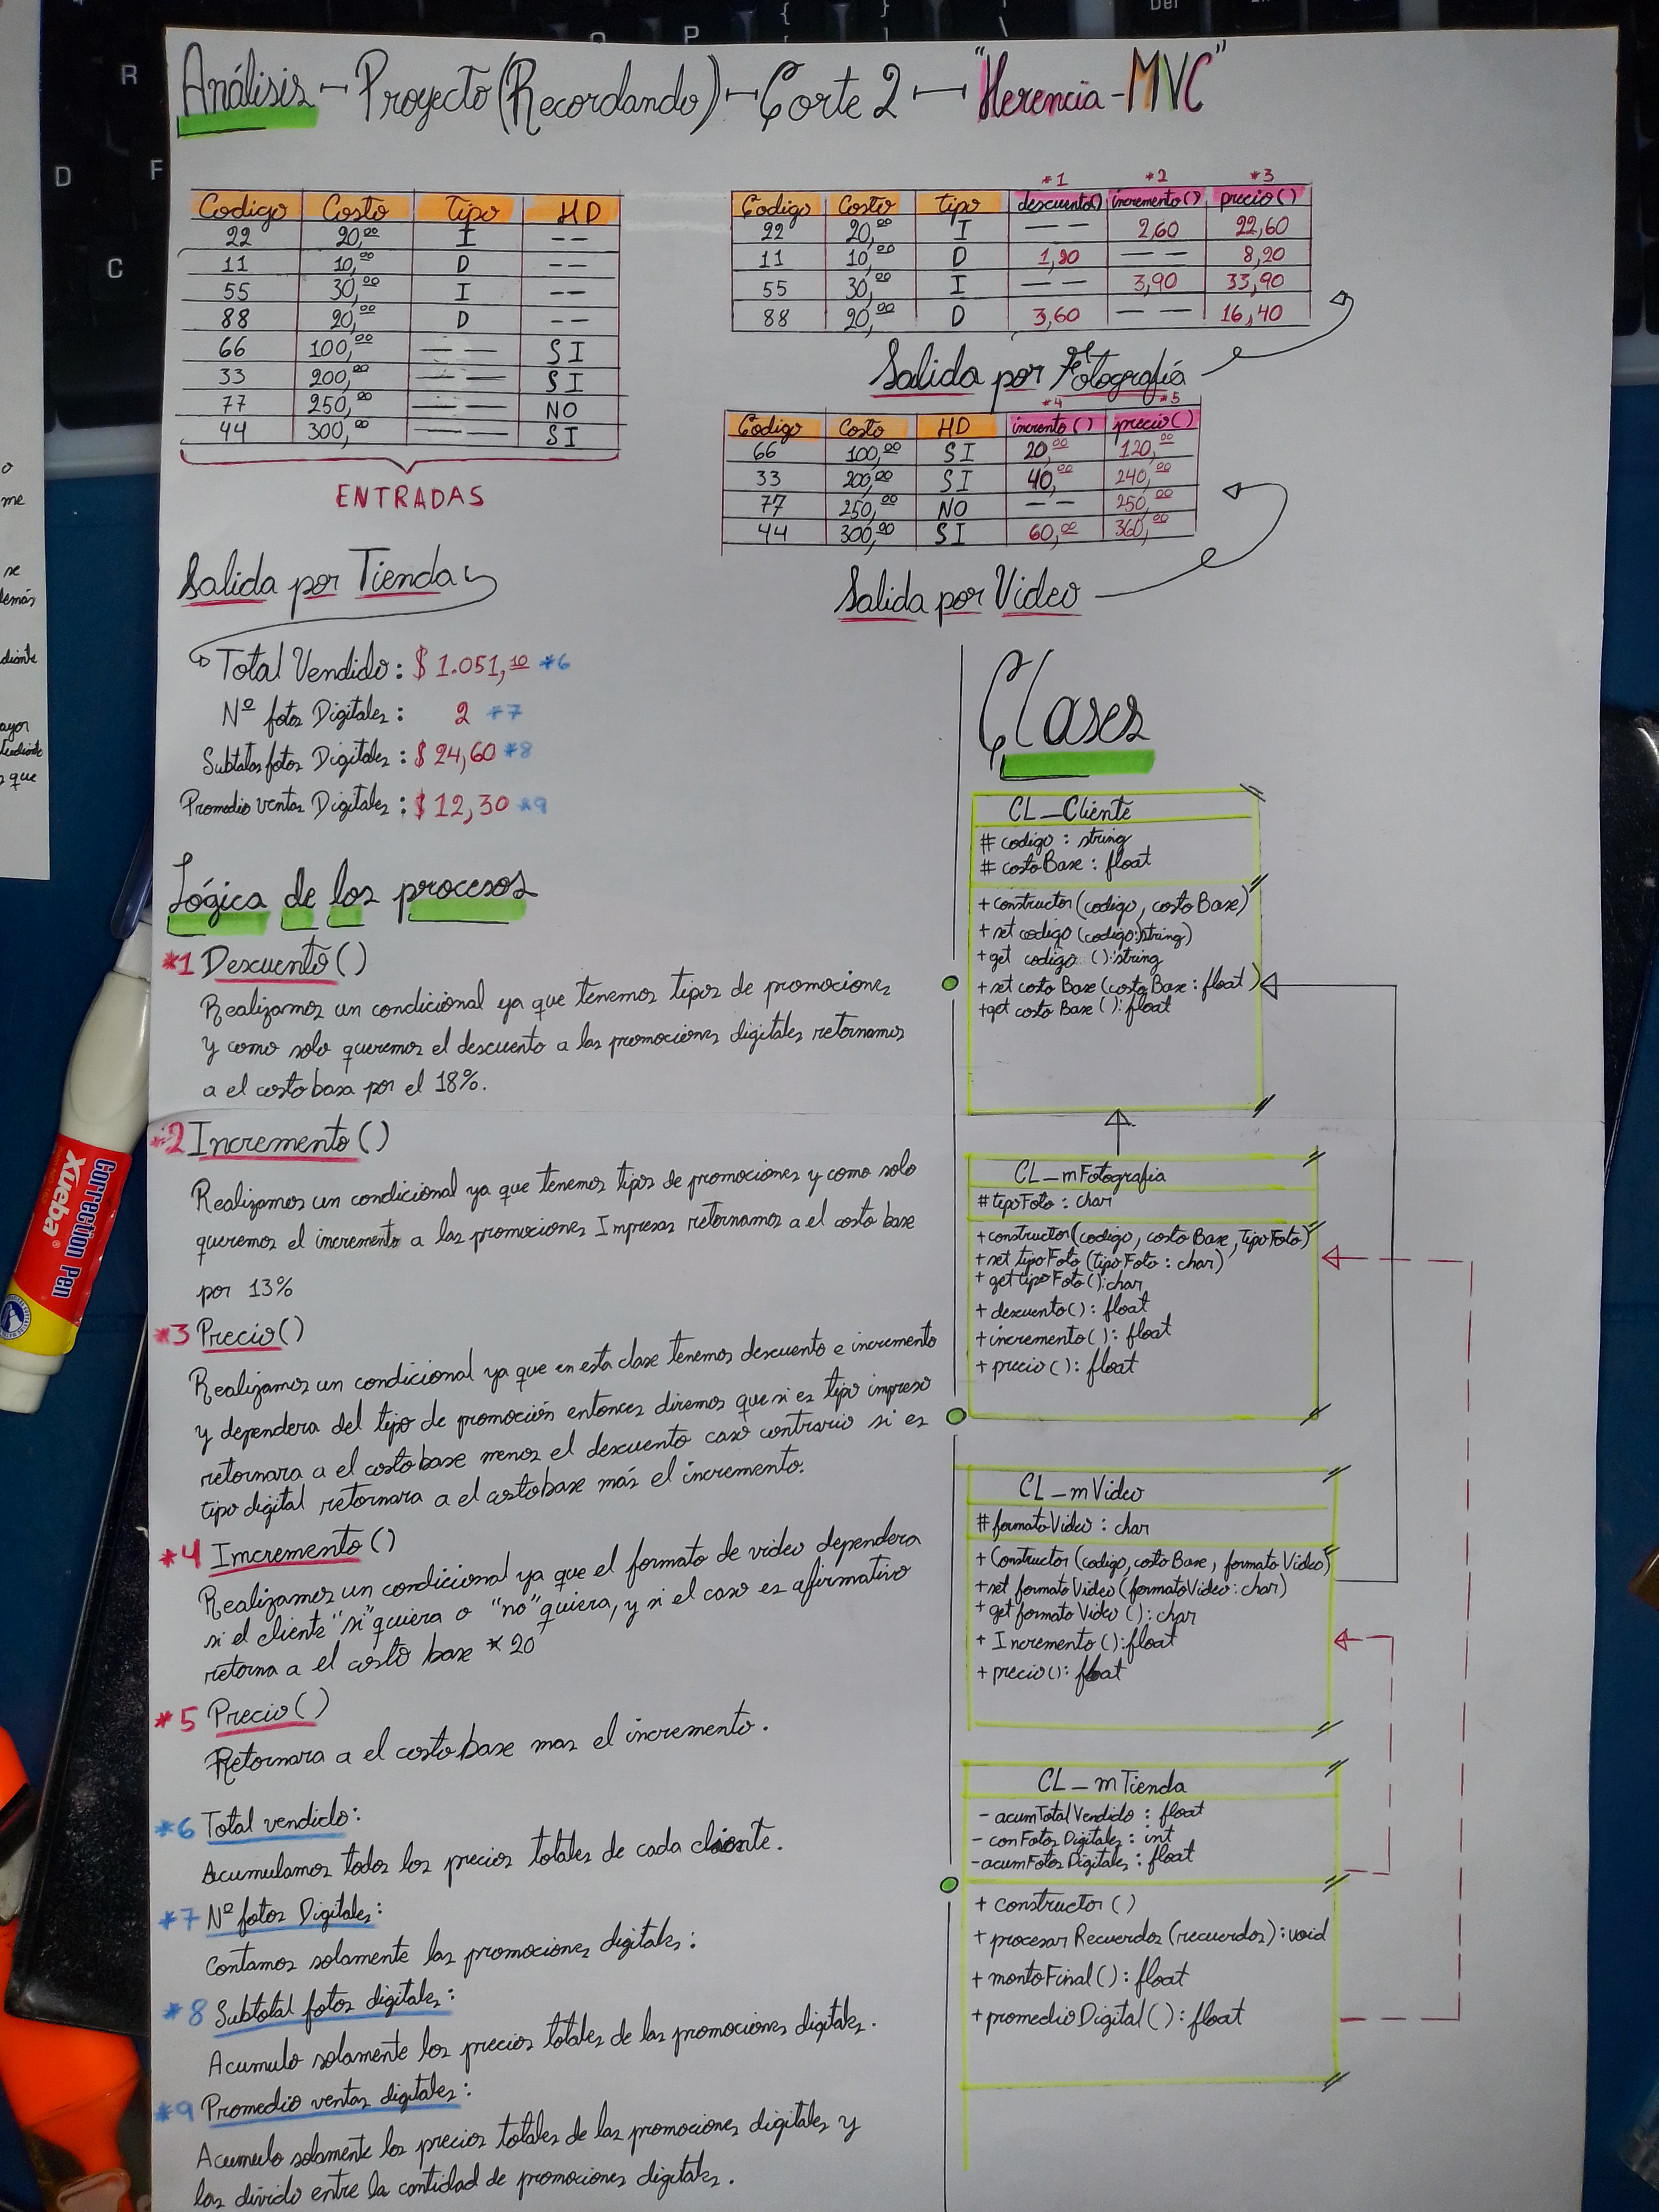 Análisis - Proyecto (Recordando) - Corte 2 - "Herencia - MVC"
Codigo Costo Tipo HD
22 20,00 I --
11 10,00 D --
55 30,00 I --
88 20,00 D --
66 100,00 -- SI
33 200,00 -- SI
77 250,00 -- NO
44 300,00 -- SI
ENTRADAS
*1 *2 *3
Codigo Costo tipo descuento() incremento() precio()
22 20,00 I -- 2,60 22,60
11 10,00 D 1,80 -- 8,20
55 30,00 I -- 3,90 33,90
88 20,00 D 3,60 -- 16,40
Salida por Fotografía
*4 *5
Codigo Costo HD incremto() precio()
66 100,00 SI 20,00 120,00
33 200,00 SI 40,00 240,00
77 250,00 NO -- 250,00
44 300,00 SI 60,00 360,00
Salida por Video
Salida por Tienda
Total Vendido: $ 1.051,10 *6
Nº fotos Digitales: 2 *7
Subtalos fotos Digitales: $ 24,60 *8
Promedio ventas Digitales: $ 12,30 *9
Lógica de los procesos
*1 Descuento()
Realizamos un condicional ya que tenemos tipos de promociones
y como solo queremos el descuento a las promociones digitales retornamos
a el costo basa por el 18%.
*2 Incremento()
Realizamos un condicional ya que tenemos tipos de promociones y como solo
queremos el incremento a las promociones Impresas retornamos a el costo base
por 13%
*3 Precio()
Realizamos un condicional ya que en esta clase tenemos descuento e incremento
y dependera del tipo de promoción entonces diremos que si es tipo impreso
retornara a el costo base menos el descuento caso contrario si es
tipo digital retornara a el costo base más el incremento.
*4 Imcremento()
Realizamos un condicional ya que el formato de video dependera
si el cliente "si" quiera o "no" quiera, y si el caso es afirmativo
retorna a el costo base * 20
*5 Precio()
Retornara a el costo base mas el incremento.
*6 Total vendido:
Acumulamos todos los precios totales de cada cliente.
*7 Nº fotos Digitales:
Contamos solamente las promociones digitales:
*8 Subtotal fotos digitales:
Acumulo solamente los precios totales de las promociones digitales.
*9 Promedio ventas digitales:
Acumulo solamente los precios totales de las promociones digitales y
los divido entre la cantidad de promociones digitales.
Clases
CL_Cliente
# codigo : string
# costo Base : float
+ constructor (codigo, costo Base)
+ set codigo (codigo: string)
+ get codigo (): string
+ set costo Base (costo Base : float)
+ get costo Base (): float
CL_mFotografia
# tipoFoto : char
+ constructor (codigo, costo Base, TipoFoto)
+ set tipoFoto (tipoFoto : char)
+ get tipoFoto (): char
+ descuento (): float
+ incremento (): float
+ precio (): float
CL_mVideo
# formatoVideo : char
+ Constructor (codigo, costo Base, formatoVideo)
+ set formatoVideo (formatoVideo: char)
+ get formato Video (): char
+ Incremento (): float
+ precio (): float
CL_mTienda
- acumTotalVendido : float
- conFotosDigitales : int
- acumFotosDigitales : float
+ constructor ()
+ procesar Recuerdos (recuerdos) : void
+ montoFinal () : float
+ promedioDigital () : float
Correction Pen
Xueba®
R
P
D
F
C
Del
o
me
se
demás
ayor
s que